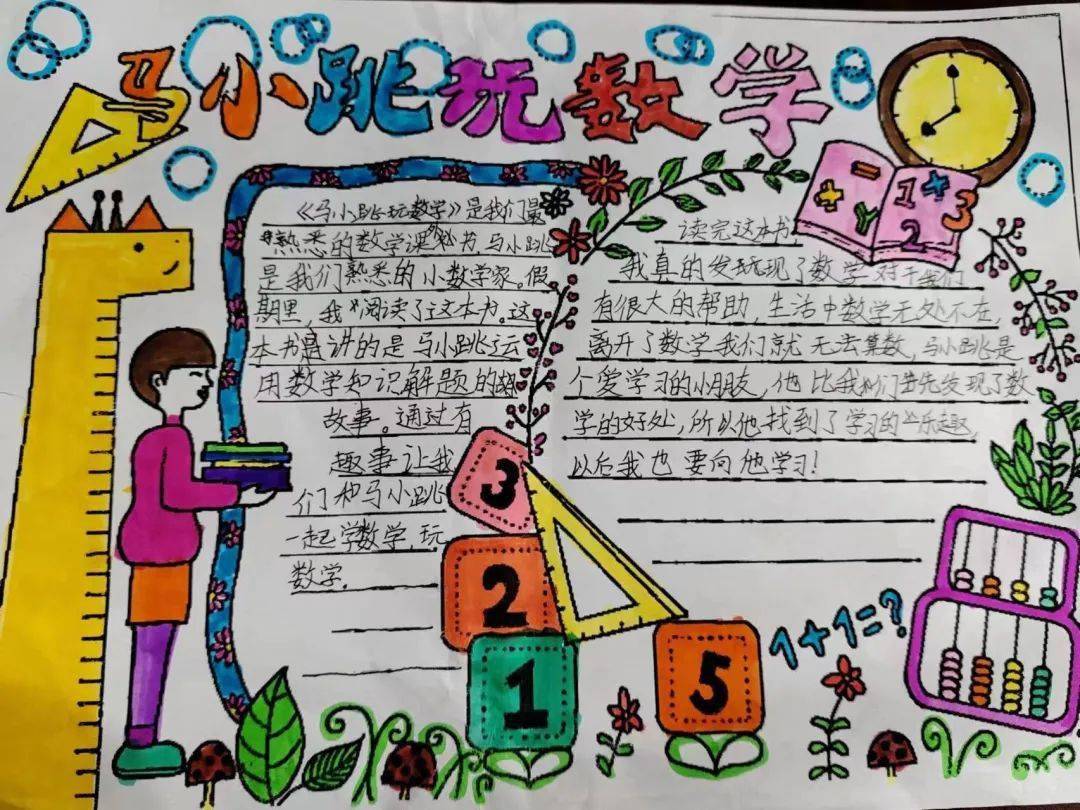 马小跳玩数学
《马小跳玩数学》是我们最
熟悉的数学课外书 马小跳
是我们熟悉的小数学家。假
期里，我阅读了这本书。这
本书是讲的是马小跳运
用数学知识解题的
故事。通过有
趣事让我
们和马小跳
一起学数学，玩
数学。
读完这本书，
我真的发现了数学对于我们
有很大的帮助，生活中数学无处不在，
离开了数学我们就无法算数，马小跳是
个爱学习的小朋友，他比我们先发现了数
学的好处，所以他找到了学习的乐趣，
以后我也要向他学习！
1
2
3
3
2
1
5
1+1=?